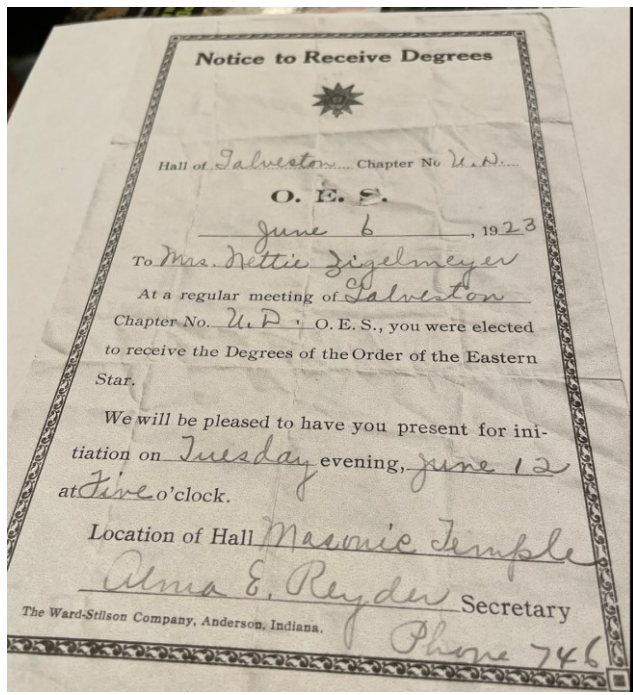 Notice to Receive Degrees
Hall of Galveston Chapter No U.D.
O. E. S.
June 6, 1923
To Mrs. Nettie Zigelmeyer
At a regular meeting of Galveston
Chapter No. U.D., O. E. S., you were elected
to receive the Degrees of the Order of the Eastern
Star.
We will be pleased to have you present for ini-
tiation on Tuesday evening, June 12
at Five o'clock.
Location of Hall Masonic Temple
Alma E. Reyder Secretary
The Ward-Stilson Company, Anderson, Indiana.
Phone 746